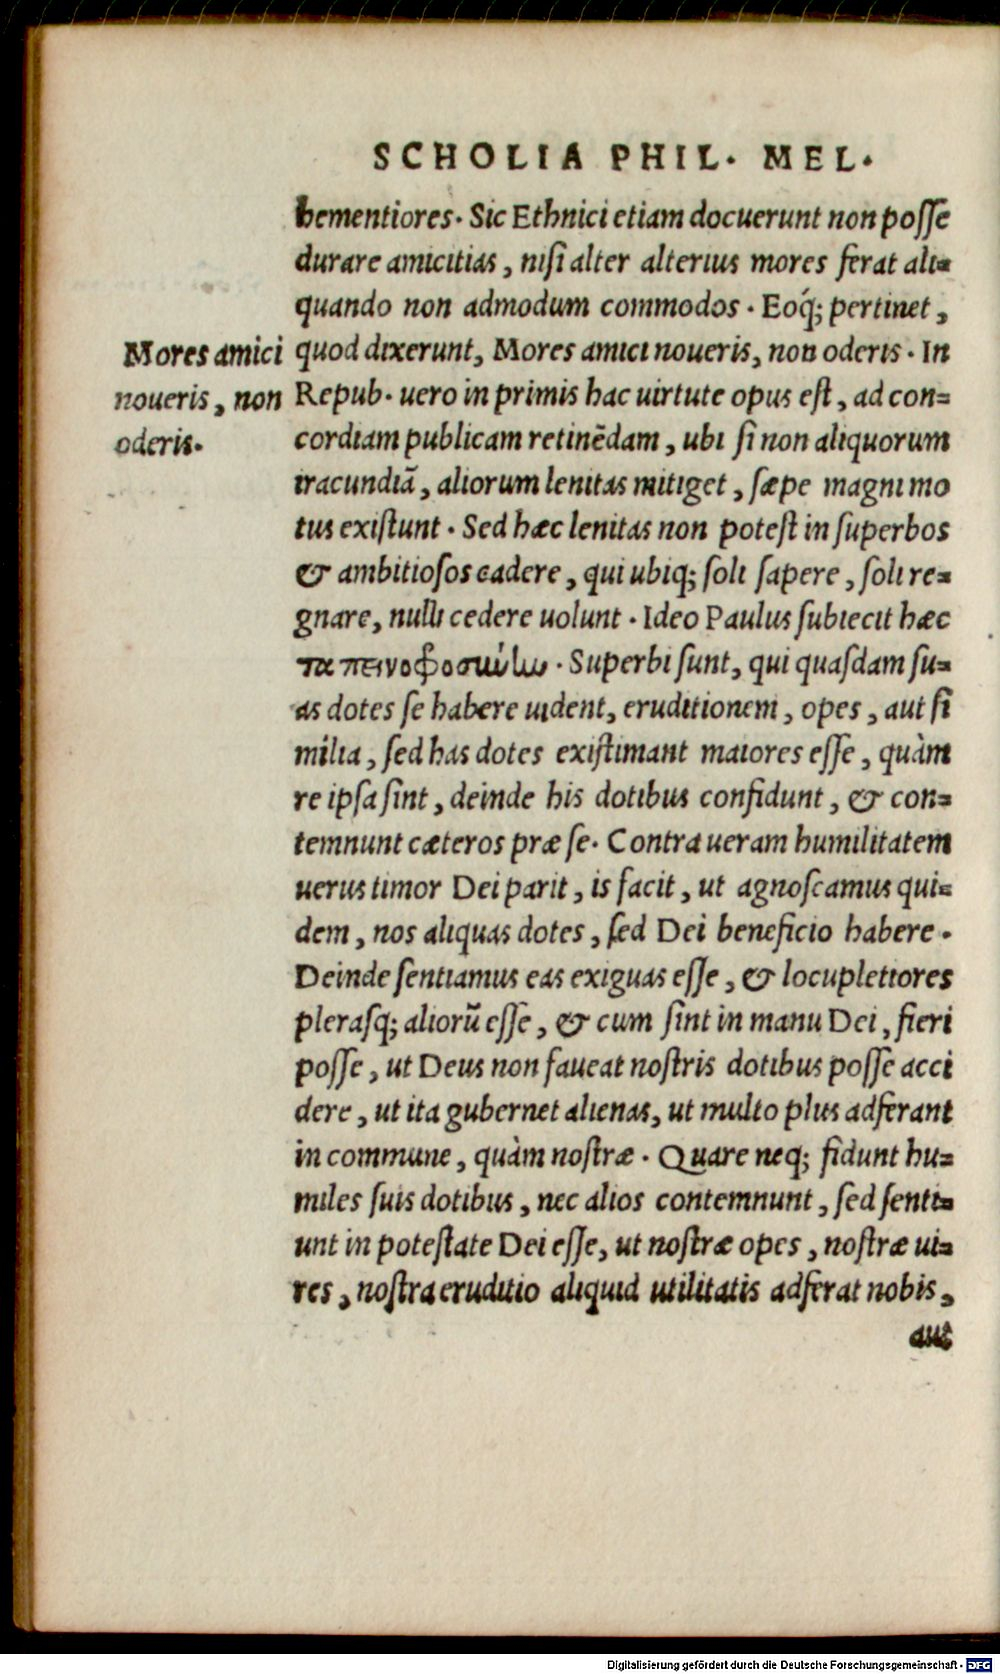 SCHOLIA PHIL. MEL.
hementiores. Sic Ethnici etiam docuerunt non posse
durare amicitias, nisi alter alterius mores ferat ali=
quando non admodum commodos. Eoq́; pertinet,
Mores amici
noueris, non
oderis.
quod dixerunt, Mores amici noueris, non oderis. In
Repub. uero in primis hac uirtute opus est, ad con=
cordiam publicam retinēdam, ubi si non aliquorum
iracundiā, aliorum lenitas mitiget, sæpe magni mo
tus existunt. Sed hæc lenitas non potest in superbos
& ambitiosos cadere, qui ubiq; soli sapere, soli re=
gnare, nulli cedere uolunt. Ideo Paulus subiecit hæc
ταπεινοφροσιώίω. Superbi sunt, qui quasdam su=
as dotes se habere uident, eruditionem, opes, aut si
milia, sed has dotes existimant maiores esse, quàm
re ipsa sint, deinde his dotibus confidunt, & con=
temnunt cæteros præ se. Contra ueram humilitatem
uerus timor Dei parit, is facit, ut agnoscamus qui=
dem, nos aliquas dotes, sed Dei beneficio habere.
Deinde sentiamus eas exiguas esse, & locupletiores
plerasq; aliorū esse, & cum sint in manu Dei, fieri
posse, ut Deus non faueat nostris dotibus posse acci
dere, ut ita gubernet alienas, ut multo plus adferant
in commune, quàm nostræ. Quare neq; fidunt hu=
miles suis dotibus, nec alios contemnunt, sed senti=
unt in potestate Dei esse, ut nostræ opes, nostræ ui=
res, nostra eruditio aliquid utilitatis adferat nobis,
aut
Digitalisierung gefördert durch die Deutsche Forschungsgemeinschaft - DFG